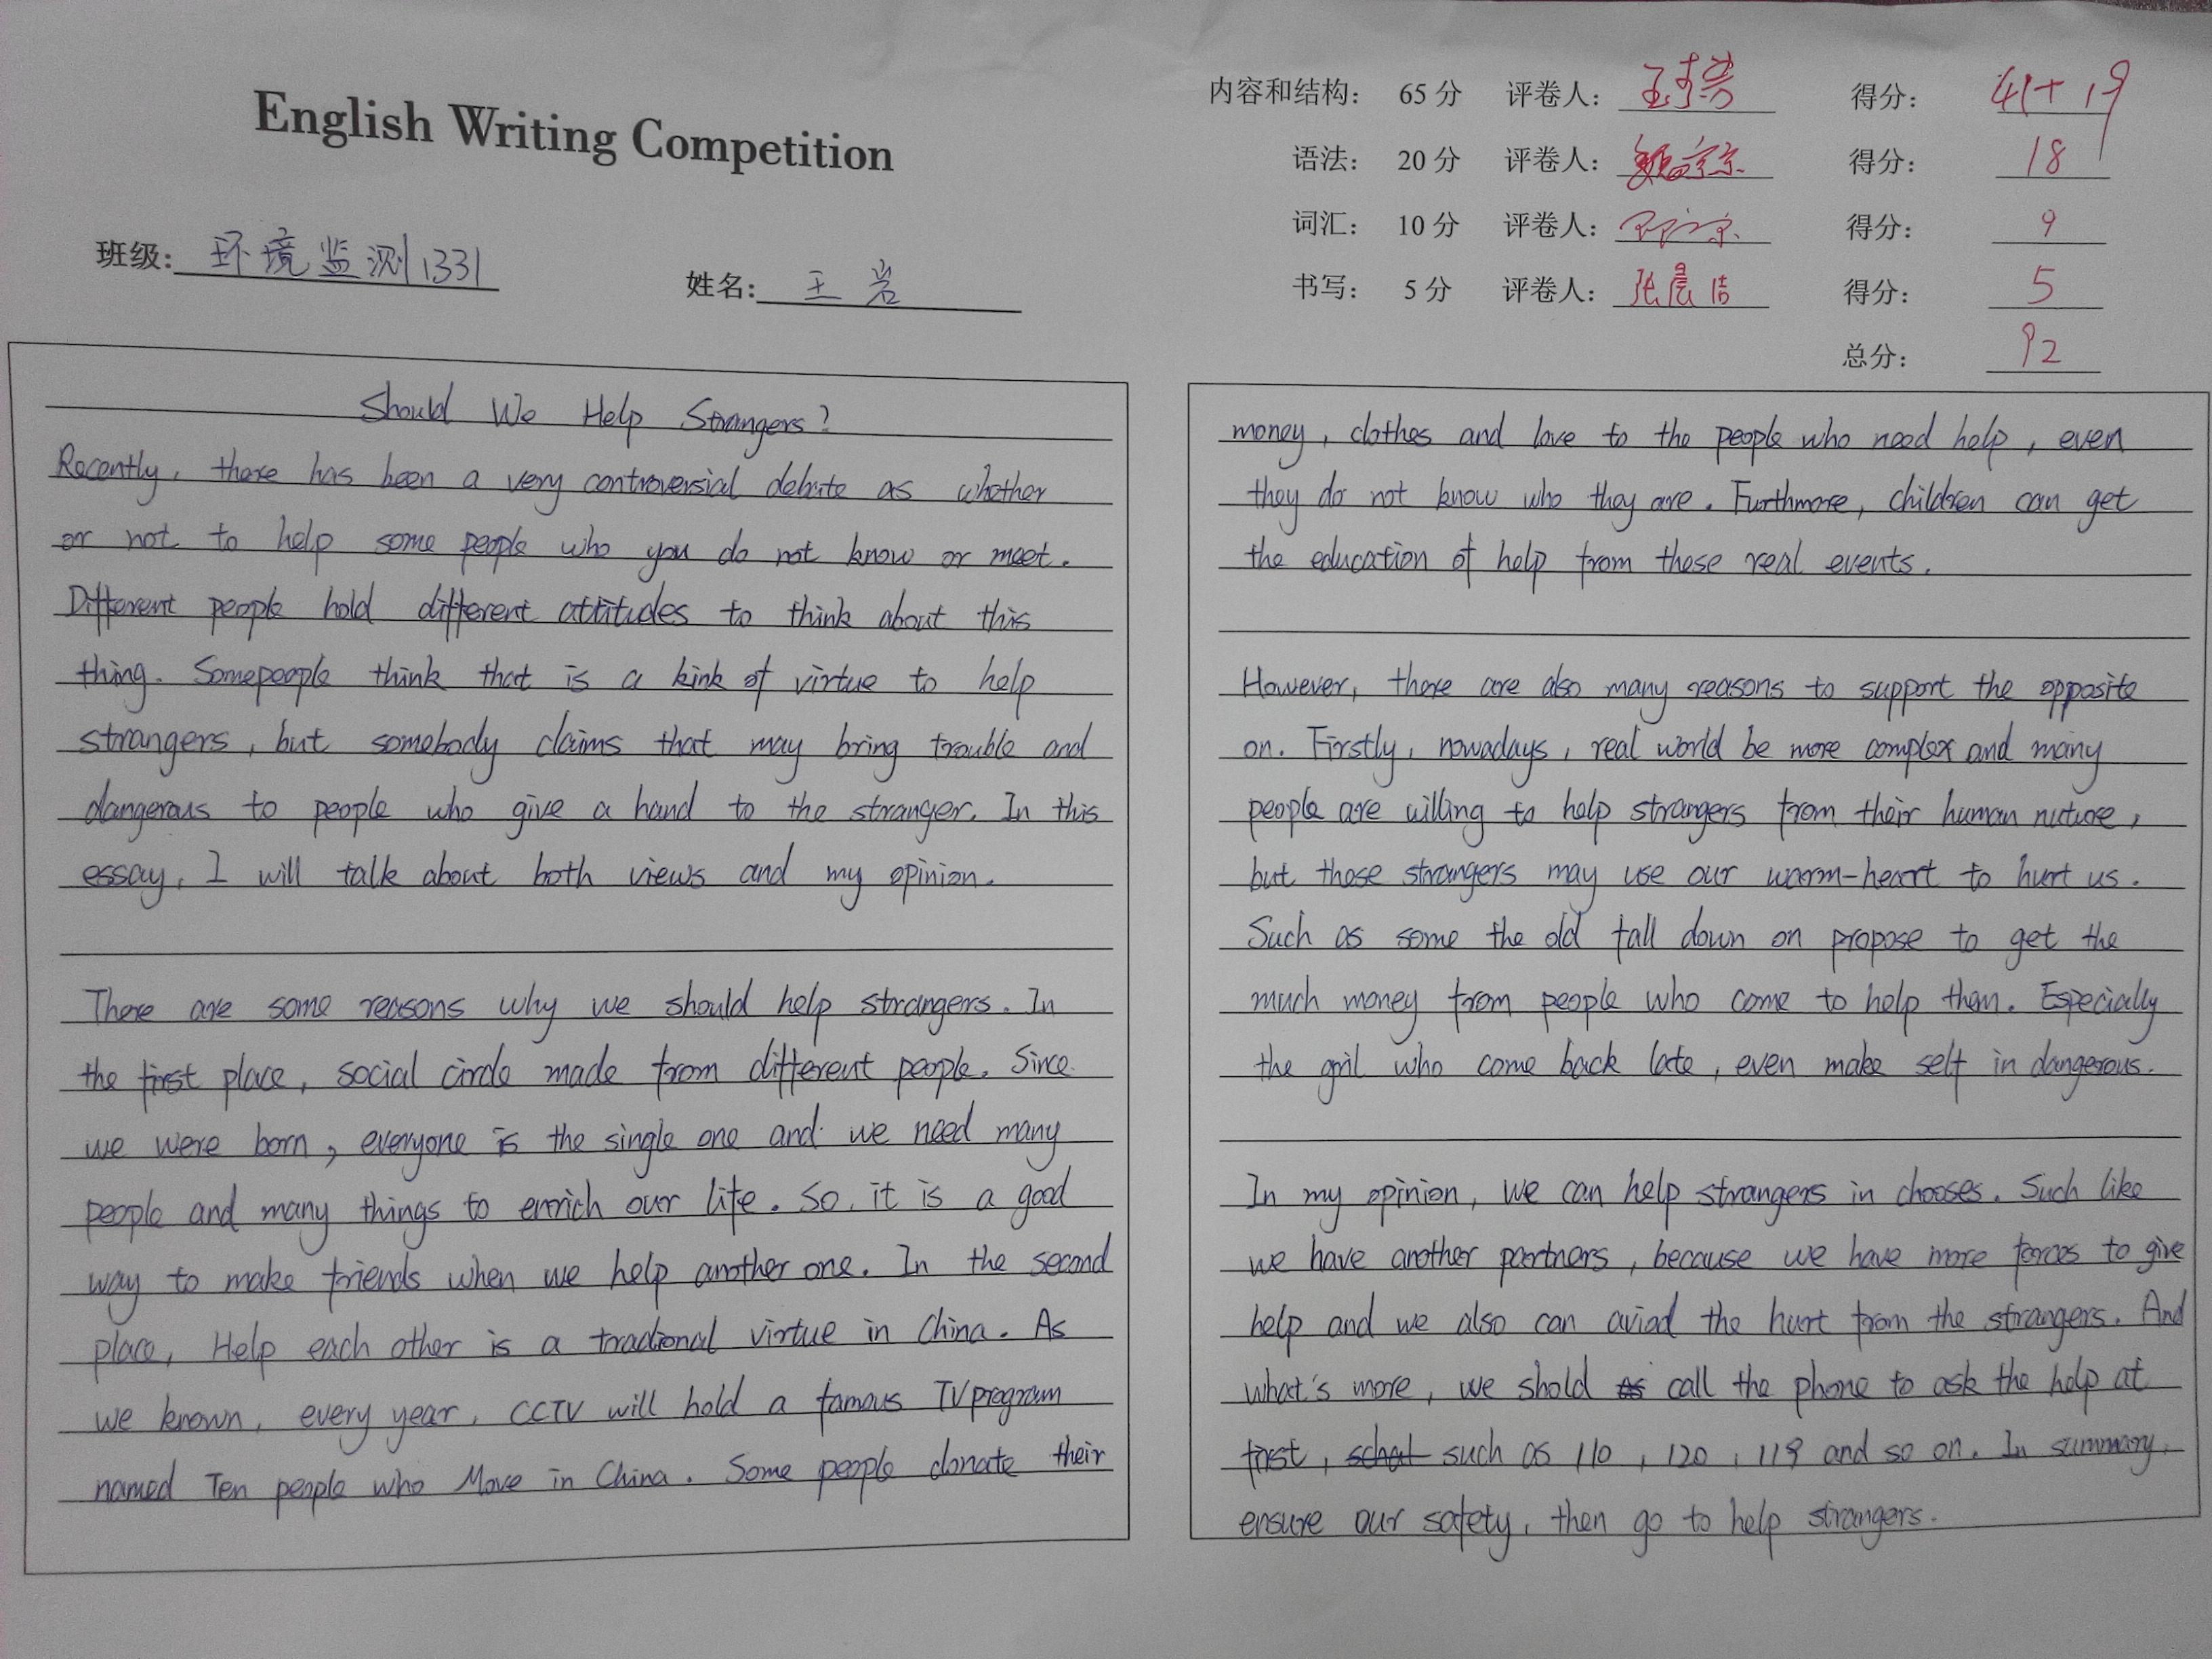 English Writing Competition
班级: 环境监测1331
姓名: 王岩
内容和结构: 65 分 评卷人: 得分: 41+19
语法: 20 分 评卷人: 得分: 18
词汇: 10 分 评卷人: 得分: 9
书写: 5 分 评卷人: 张晨洁 得分: 5
总分: 92
Should We Help Strangers?
Recently, there has been a very controversial debate as whether
or not to help some people who you do not know or meet.
Different people hold different attitudes to think about this
thing. Somepeople think that is a kink of virtue to help
strangers, but somebody claims that may bring trouble and
dangerous to people who give a hand to the stranger. In this
essay, I will talk about both views and my opinion.
There are some reasons why we should help strangers. In
the first place, social circle made from different people. Since
we were born, everyone is the single one and we need many
people and many things to enrich our life. So, it is a good
way to make friends when we help another one. In the second
place, Help each other is a tradional virtue in China. As
we known, every year, CCTV will hold a famous TV program
named Ten people who Move in China. Some people donate their
money, clothes and love to the people who need help, even
they do not know who they are. Furthmore, children can get
the education of help from these real events.
However, there are also many reasons to support the opposite
on. Firstly, nowadays, real world be more complex and many
people are willing to help strangers from their human nuture,
but those strangers may use our warm-heart to hurt us.
Such as some the old fall down on propose to get the
much money from people who come to help them. Especially
the gril who come back late, even make self in dangerous.
In my opinion, we can help strangers in chooses. Such like
we have another partners, because we have more forces to give
help and we also can aviod the hurt from the strangers. And
what's more, we shold call the phone to ask the help at
first, such as 110, 120, 119 and so on. In summary,
ensure our safety, then go to help strangers.